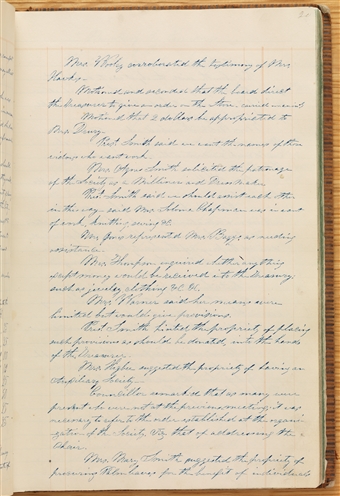 Mrs. Wooley corroborated the testimony of Mrs.
Hawks.
Motioned and seconded that the board direct
the Treasurer to give an order on the Store. carried
Motioned that 2 dollars be appropriated to
Mrs Drury.
Prest. Smith said we want the names of the
widows who want work.
Mrs. Agnes Smith solicited the patronage
of the Society as a Milliner and Dress maker.
Prest. Smith said we should assist each other
in this way. said Mrs. Chapman was in want
of work, knitting, sewing &c
Mrs. Jones represented Mrs. Boggs as needing
assistance.
Mrs. Thompson inquired whether anything
except money would be received into the treasury
such as jewelry, clothing &c. &c.
Mrs. Warner said her means were
limited but would give provisions.
Prest. Smith hinted the propriety of placing
such provisions as should be donated, into the hands
of the Treasurer.
Mrs. suggested the propriety of having an
Auxiliary Society.
Counsellor remarked that as many were
present who were not at the previous meeting, it was
necessary to refer to the order established at the organi-
zation of the Society, Viz. that of addressing the
Chair.
Mrs. Mary Smith suggested the propriety of
procuring for the benefit of individuals